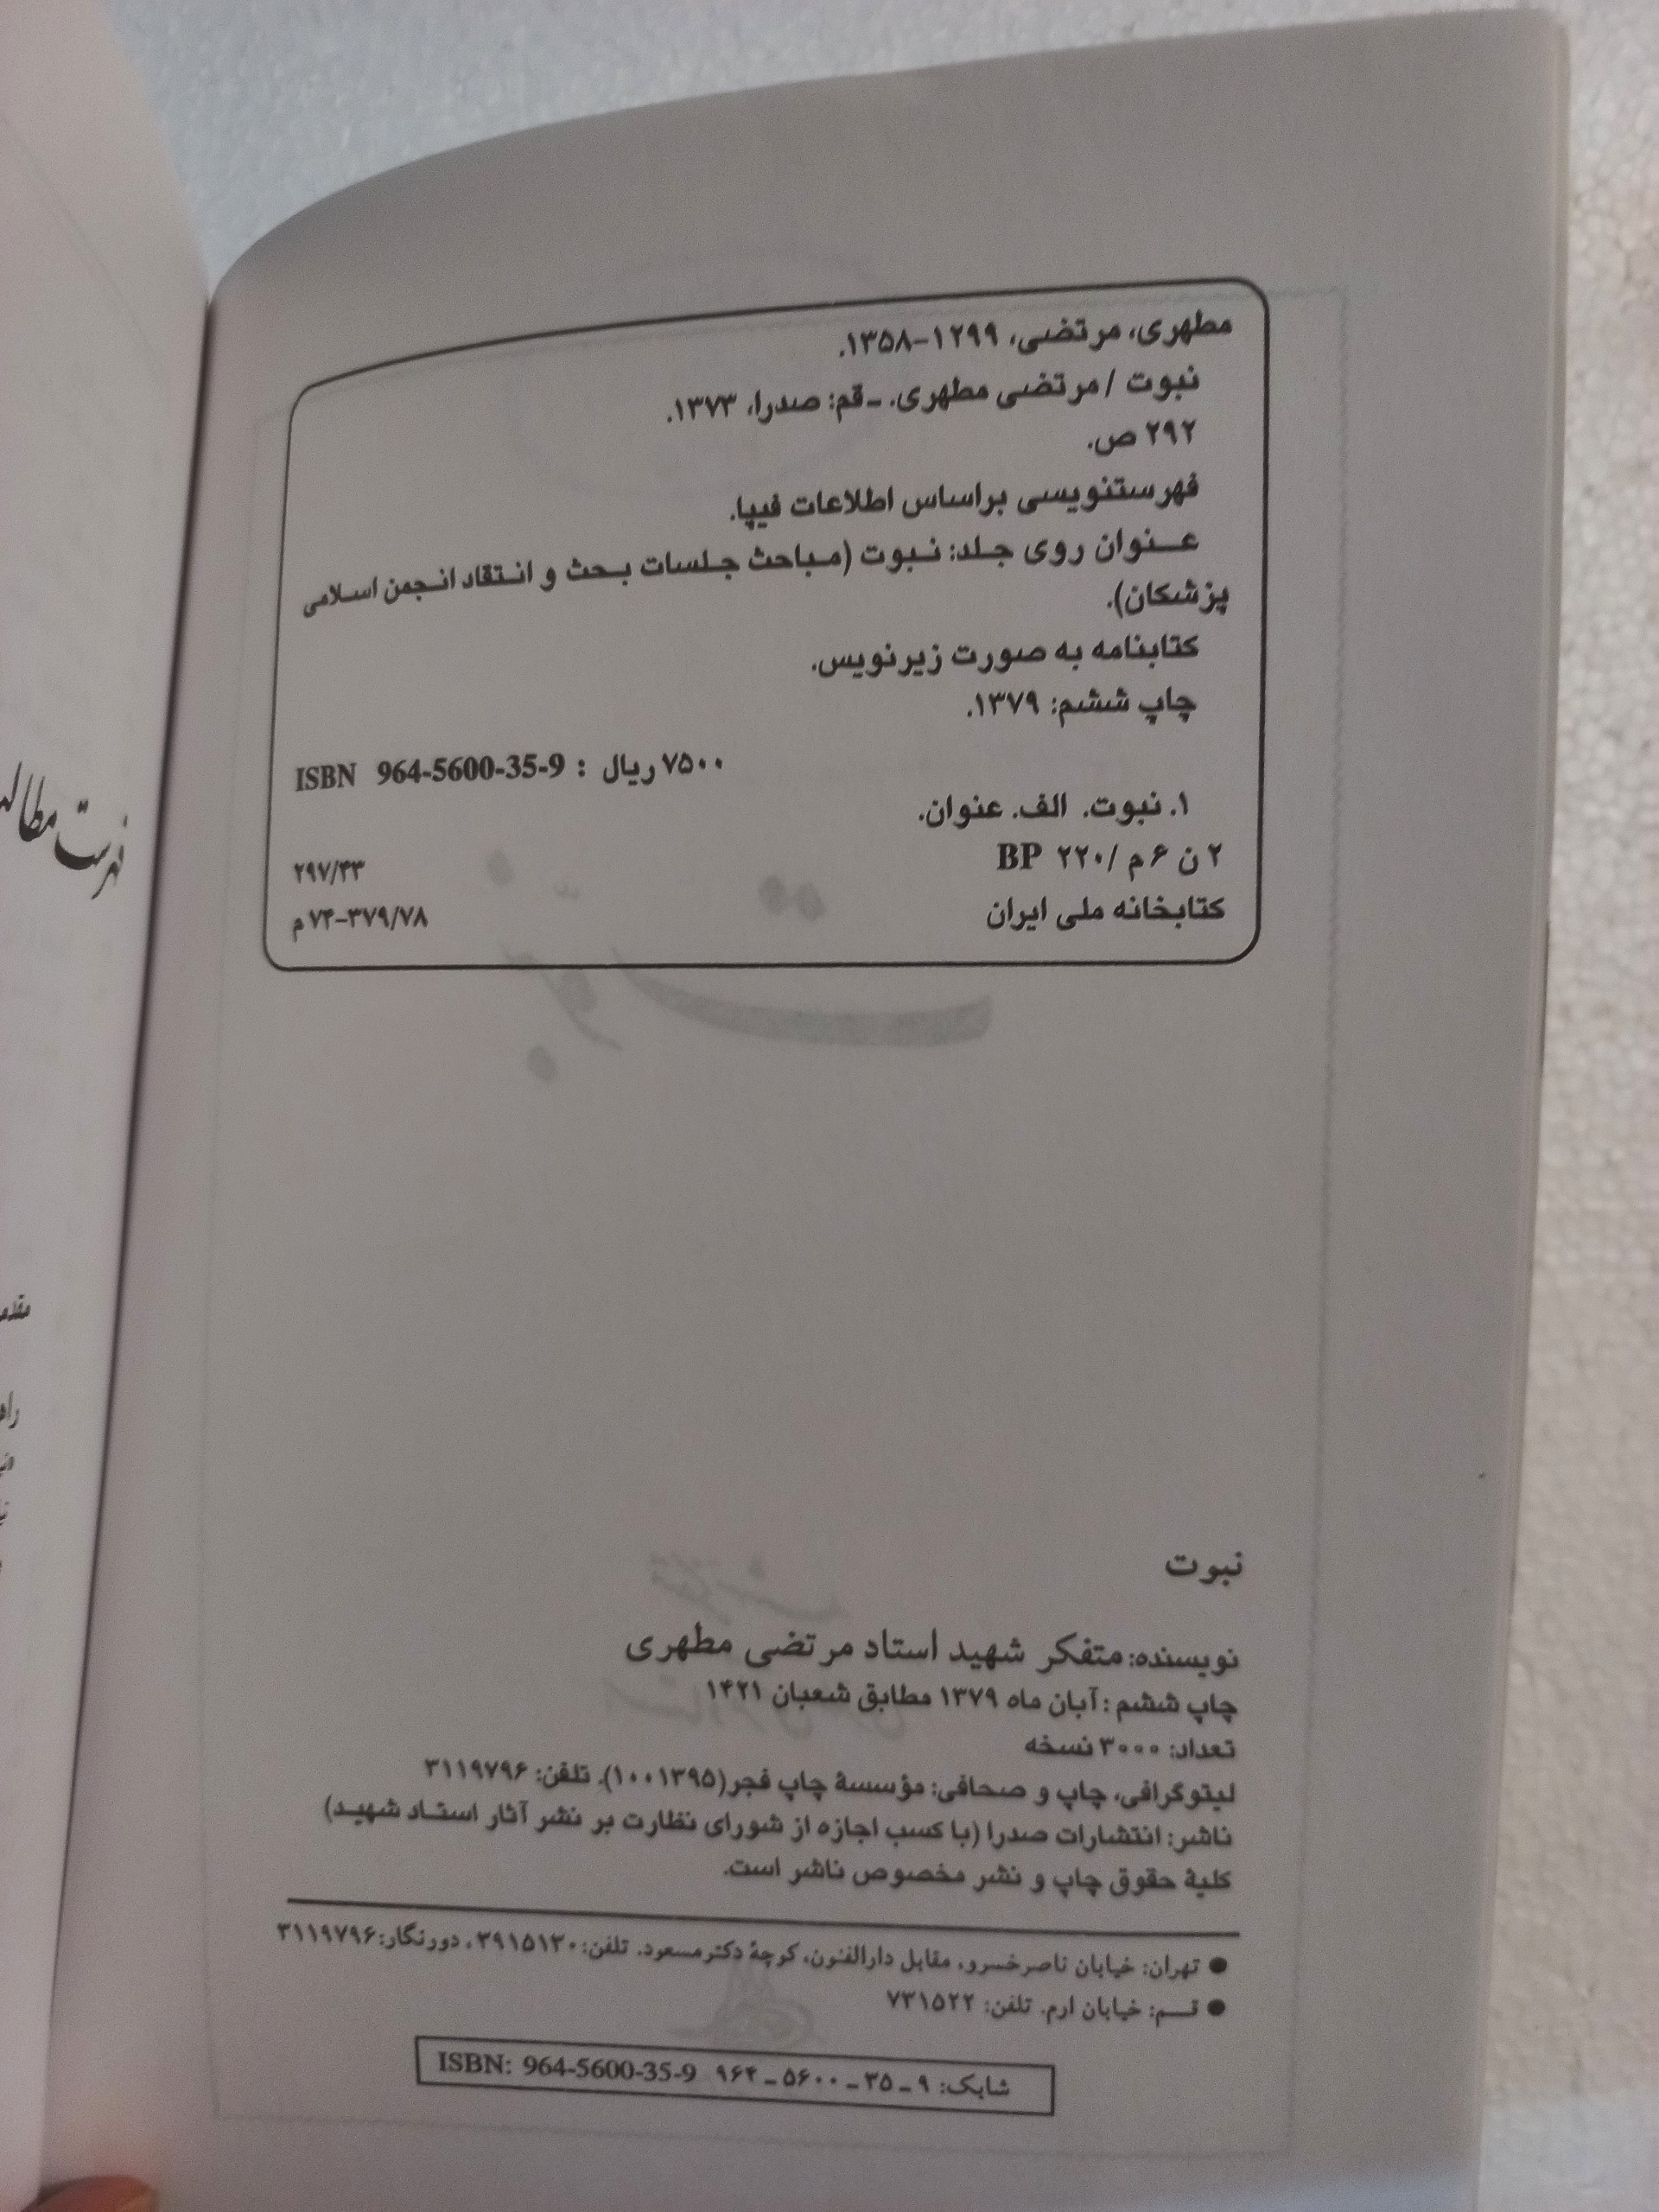 مطهری، مرتضی، ۱۲۹۹-۱۳۵۸.
نبوت / مرتضی مطهری. ـ قم: صدرا، ۱۳۷۳.
۲۹۲ ص.
فهرستنویسی براساس اطلاعات فیپا.
عنوان روی جلد: نبوت (مباحث جلسات بحث و انتقاد انجمن اسلامی
پزشکان).
کتابنامه به صورت زیرنویس.
چاپ ششم: ۱۳۷۹.
۷۵۰۰ ریال : ISBN 964-5600-35-9
۱. نبوت. الف. عنوان.
۲ ن ۶ م / ۲۲۰ BP ۲۹۷/۴۳
کتابخانه ملی ایران ۷۴-۳۷۹/۷۸ م
نبوت
نویسنده: متفکر شهید استاد مرتضی مطهری
چاپ ششم: آبان ماه ۱۳۷۹ مطابق شعبان ۱۴۲۱
تعداد: ۳۰۰۰ نسخه
لیتوگرافی، چاپ و صحافی: مؤسسهٔ چاپ فجر (۱۰۰۱۳۹۵). تلفن: ۳۱۱۹۷۹۶
ناشر: انتشارات صدرا (با کسب اجازه از شورای نظارت بر نشر آثار استاد شهید)
کلیهٔ حقوق چاپ و نشر مخصوص ناشر است.
● تهران: خیابان ناصرخسرو، مقابل دارالفنون، کوچهٔ دکتر مسعود. تلفن: ۳۹۱۵۱۳۰، دورنگار: ۳۱۱۹۷۹۶
● قم: خیابان ارم. تلفن: ۷۳۱۵۲۲
شابک: ۹ ـ ۳۵ ـ ۵۶۰۰ ـ ۹۶۴ ISBN: 964-5600-35-9